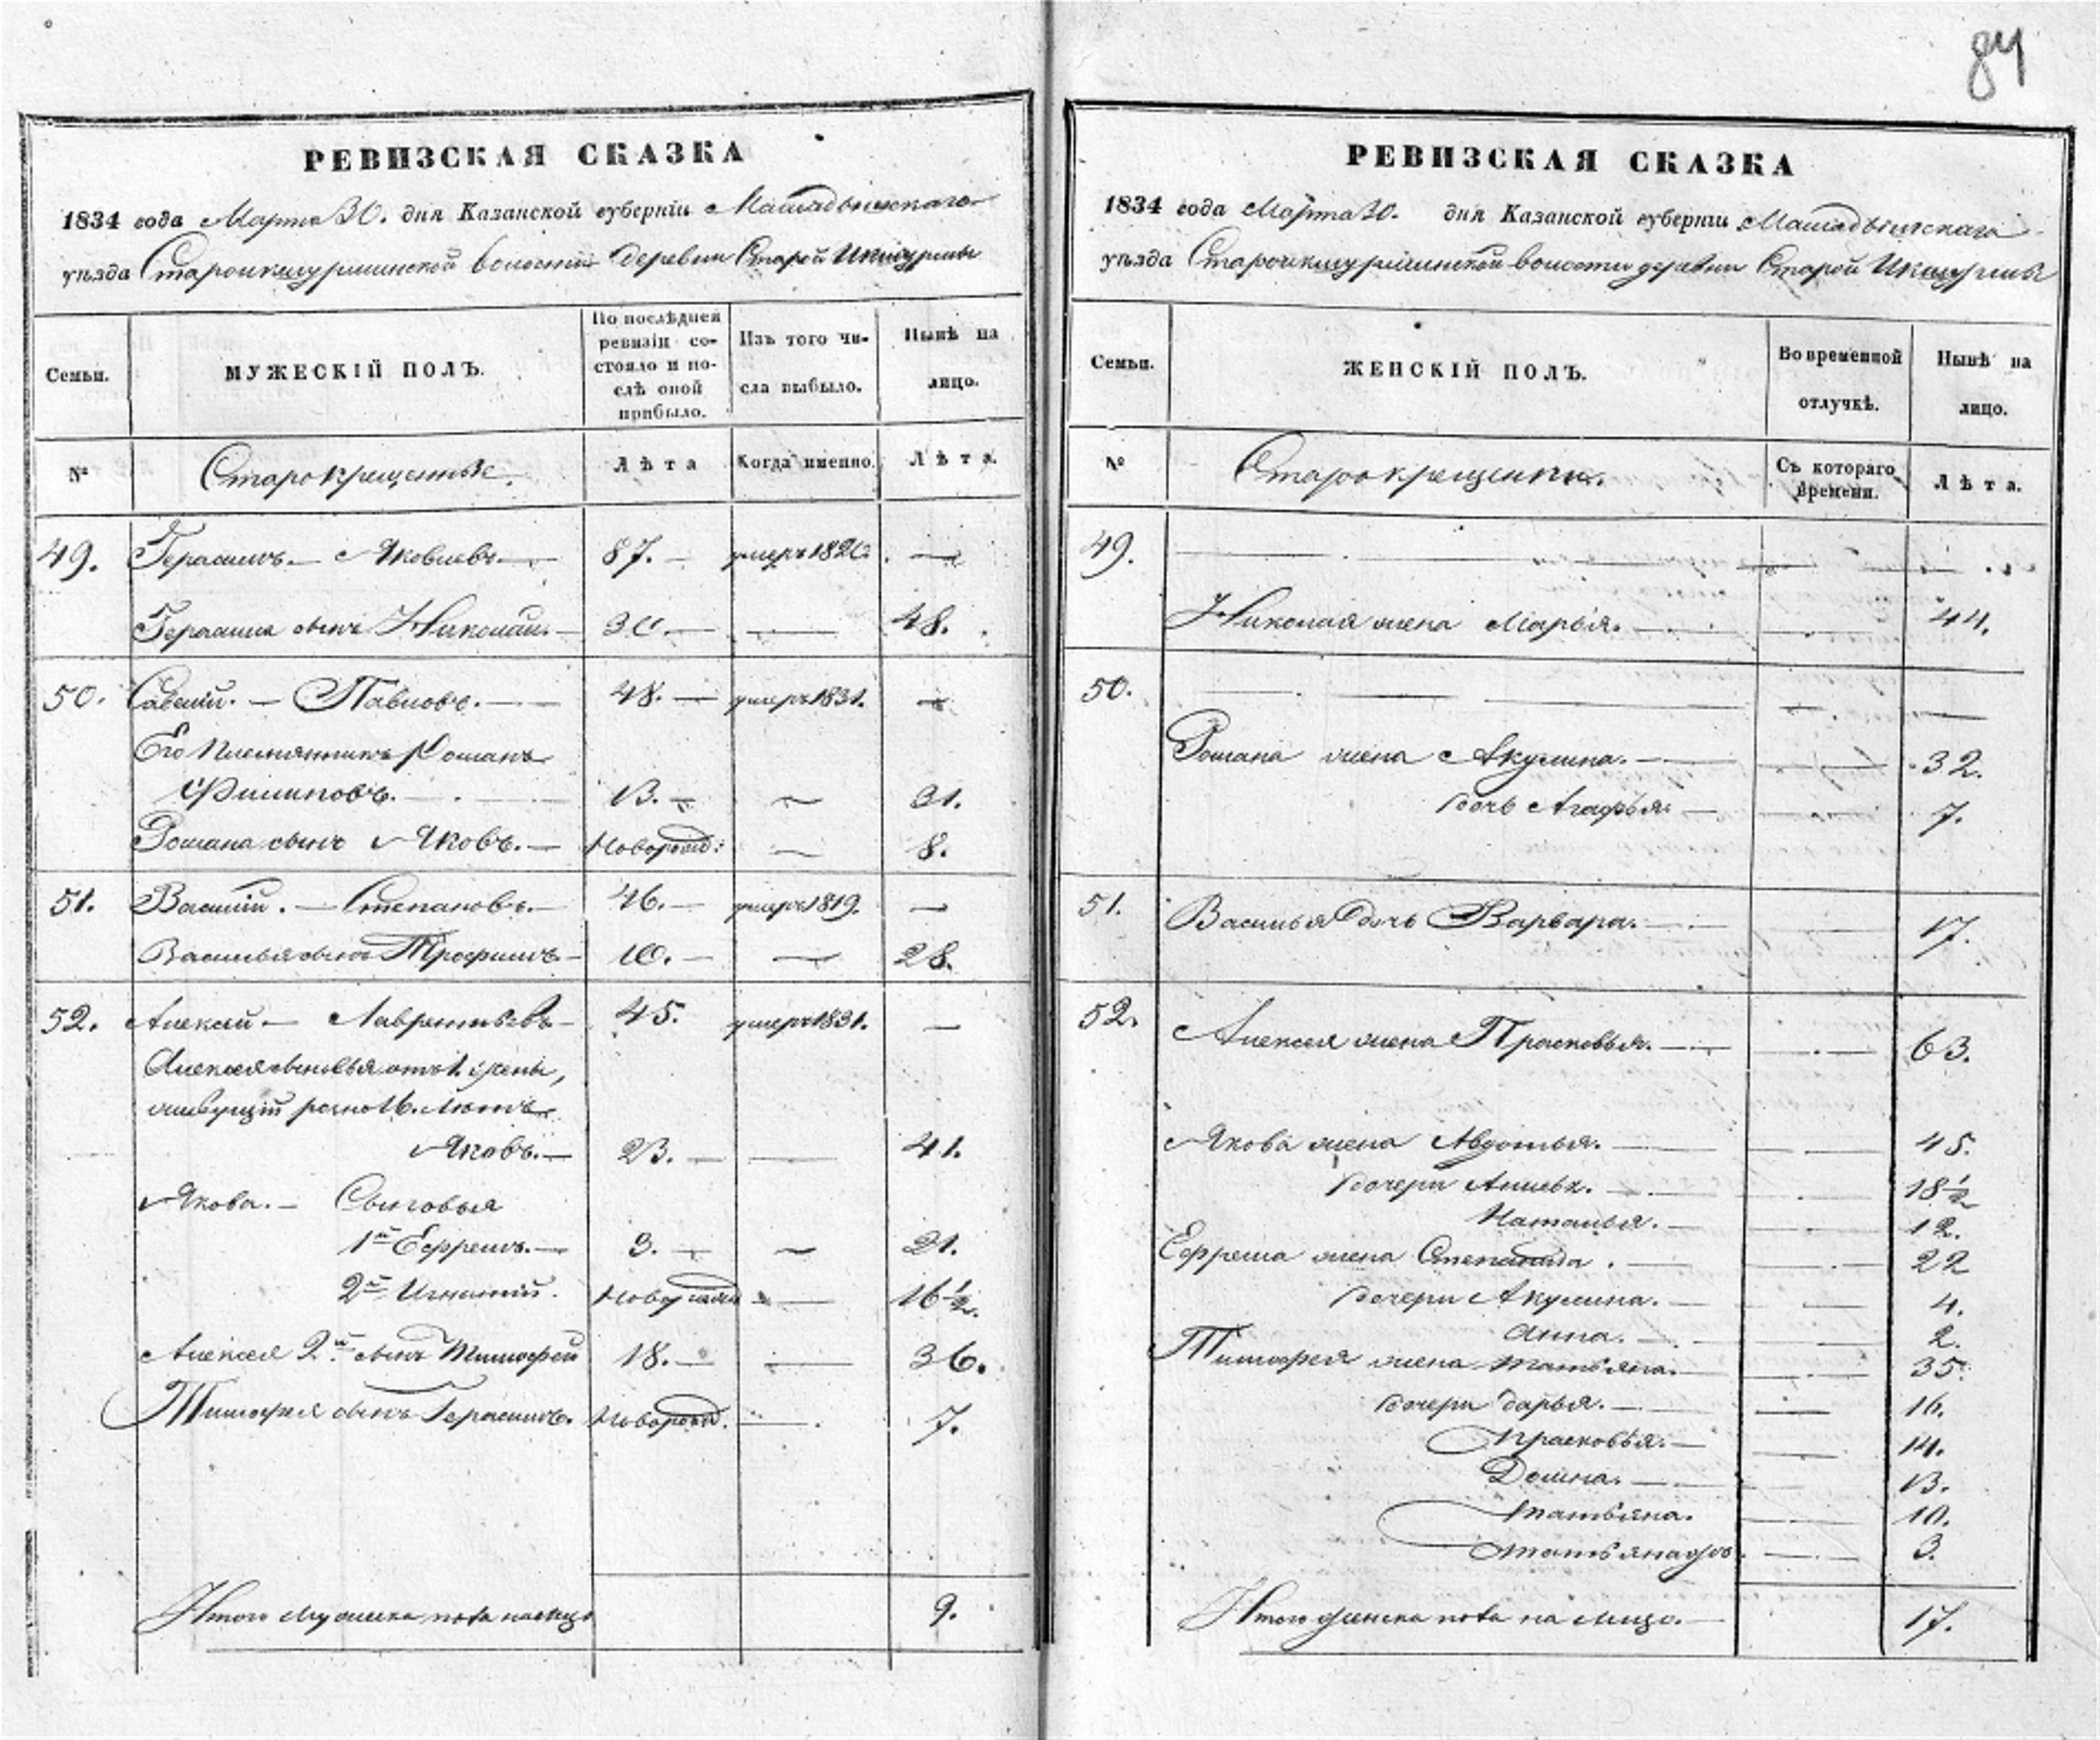 84
РЕВИЗСКАЯ СКАЗКА
1834 года Марта 30. дня Казанской губерніи Мамадышскаго
уѣзда Староикшурминской волости деревни Старой Икшурмы
Семьи.
МУЖЕСКІЙ ПОЛЪ.
По послѣдней ревизіи состояло и послѣ оной прибыло.
Изъ того числа выбыло.
Нынѣ на лицо.
№
Старокрещеные.
Лѣта
Когда именно.
Лѣта.
49. Герасимъ.— Яковлевъ.— 87.— умеръ 1820 —
Герасима сынъ Николай.— 30.— — 48.
50. Савелій.— Павловъ.— 48.— умеръ 1831. —
Его Племянникъ Романъ
Филиповъ.— 13.— — 31.
Романа сынъ Яковъ.— Новорожд: — 8.
51. Василій.— Степановъ.— 46.— умеръ 1819. —
Василья сынъ Трофимъ— 10.— — 28.
52. Алексей.— Лаврентьевъ— 45. умеръ 1831. —
Алексея сыновья отъ 1. жены,
живущій розно 16. летъ
Яковъ.— 23.— — 41.
Якова.— Сыновья
1й Ефремъ.— 3.— — 21.
2й Игнатій. Новорожден — 16 1/2.
Алексея 2й сынъ Тимофей 18.— — 36.
Тимофея сынъ Герасимъ. Новорожд. — 7.
Итого мужеска пола налицо 9.
РЕВИЗСКАЯ СКАЗКА
1834 года Марта 30. дня Казанской губерніи Мамадышскаго
уѣзда Староикшурминской волости деревни Старой Икшурмы
Семьи.
ЖЕНСКІЙ ПОЛЪ.
Во временной отлучкѣ.
Нынѣ на лицо.
№
Старокрещенки.
Съ котораго времени.
Лѣта.
49. — — —
Николая жена Марья.— — 44.
50. — — —
Романа жена Акулина.— — 32.
дочь Агафья.— — 7.
51. Василья дочь Варвара.— — 17.
52. Алексея жена Прасковья.— — 63.
Якова жена Авдотья.— — 45.
дочери — 18 1/2
Наталья.— — 12.
Ефрема жена Степанида.— — 22
дочери Акулина.— — 4.
Анна.— — 2.
Тимофея жена Татьяна.— — 35.
дочери Дарья.— — 16.
Прасковья.— — 14.
Домна.— — 13.
Татьяна. — 10.
Татьяна — 3.
Итого женска пола на лицо.— 17.